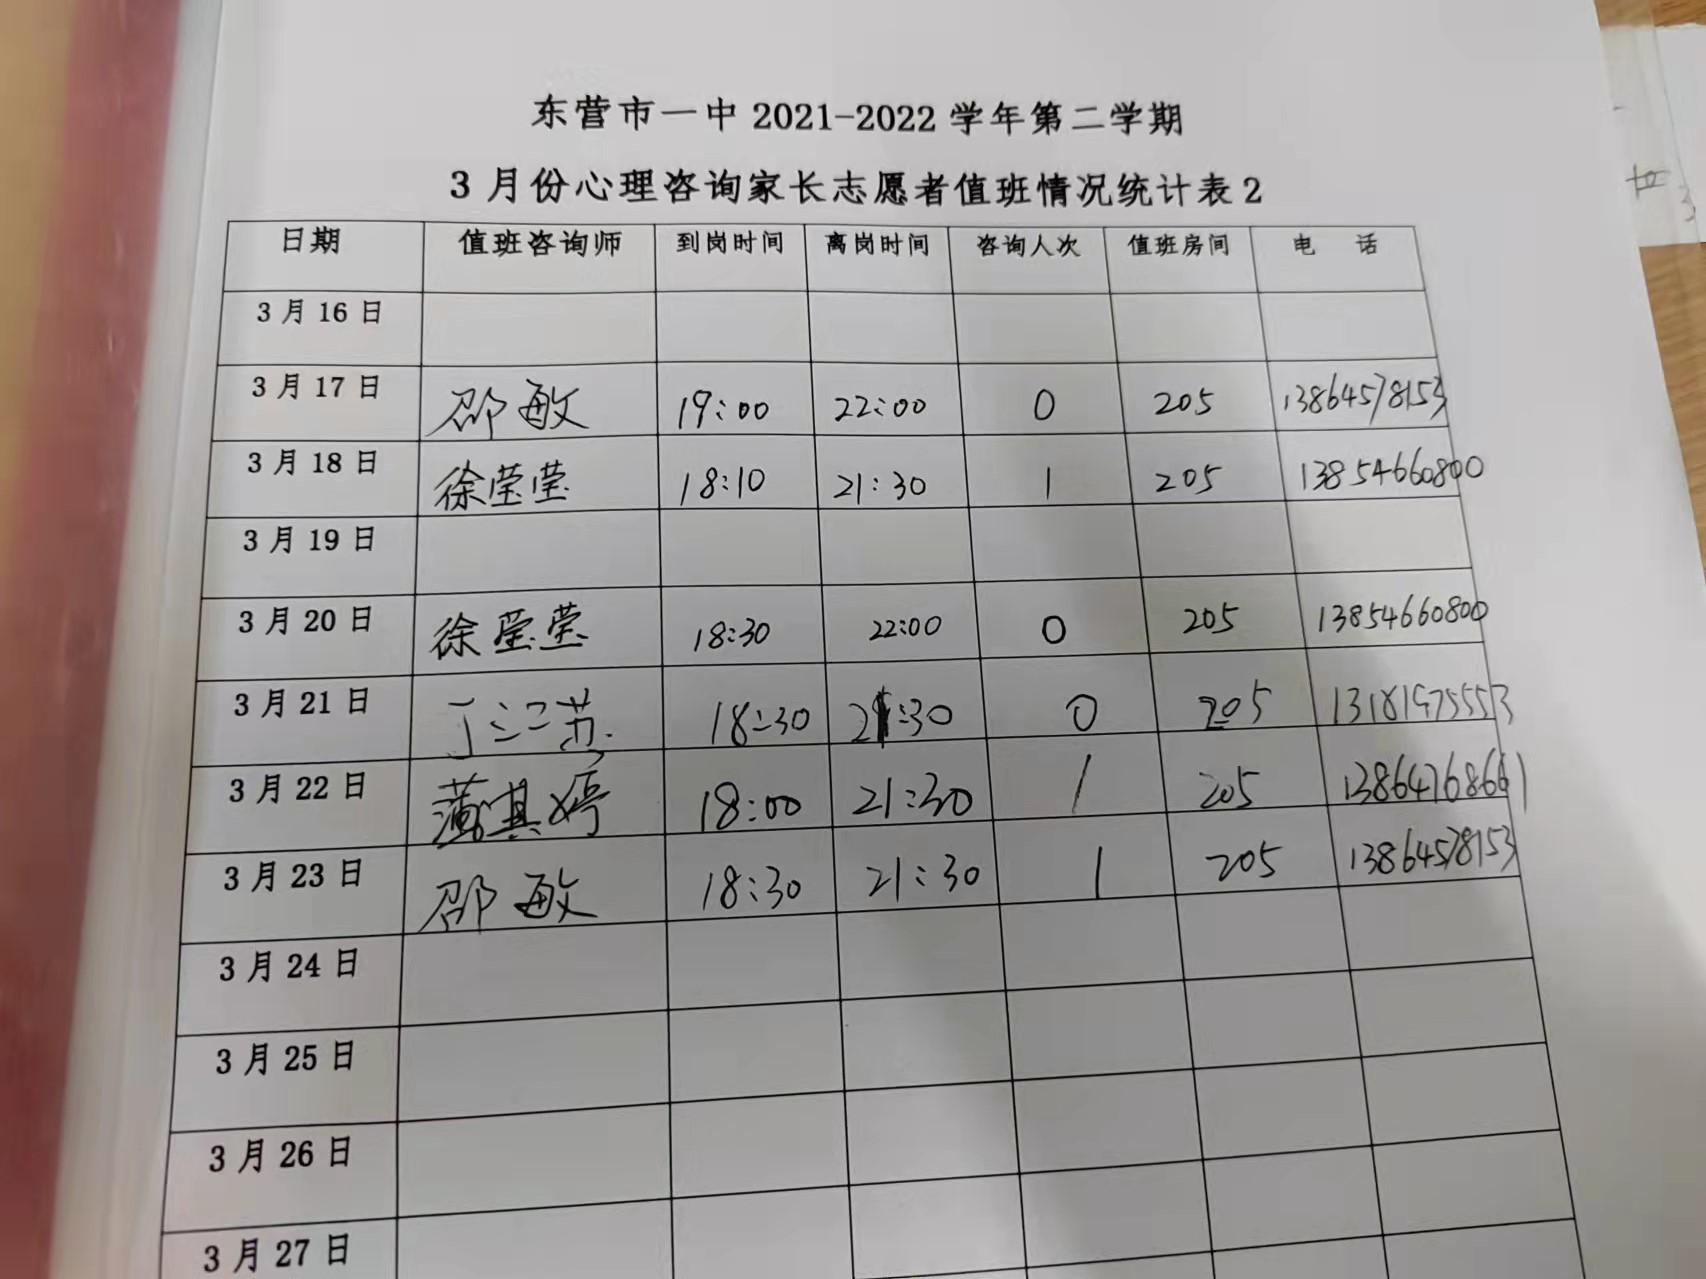 东营市一中 2021-2022 学年第二学期
3 月份心理咨询家长志愿者值班情况统计表 2
日期 值班咨询师 到岗时间 离岗时间 咨询人次 值班房间 电 话
3 月 16 日
3 月 17 日 邵敏 19:00 22:00 0 205 13864578153
3 月 18 日 徐莹莹 18:10 21:30 1 205 13854660800
3 月 19 日
3 月 20 日 徐莹莹 18:30 22:00 0 205 13854660800
3 月 21 日 丁江苏 18:30 21:30 0 205
3 月 22 日 薄其婷 18:00 21:30 1 205 13864768661
3 月 23 日 邵敏 18:30 21:30 1 205 13864578153
3 月 24 日
3 月 25 日
3 月 26 日
3 月 27 日